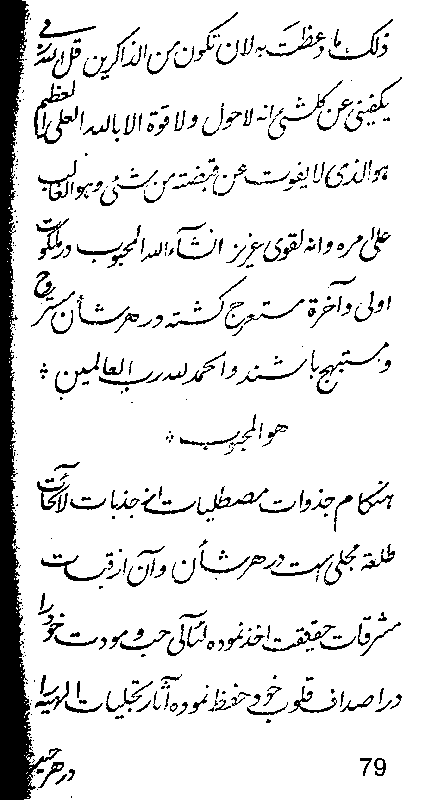 ذلک ماوعظت به لان تکون من الذاکرین قل الله
یکفینی عن کلشیئی انه لاحول ولا قوة الا بالله العلی العظیم
هوالذی لایفوت عن قبضته من شیئی وهو الغالب
علی امره وانه لقوی عزیز انشاءالله المحبوب در ملکوت
اولی وآخرة مستعرج گشته در هر شأن مستروح
ومستبهج باشند والحمدلله رب العالمین *
هوالمحبوب *
هنگام جذوات مصطلیات از جذبات لائحات
طلعة مجلی است در هر شأن وآن از قبسات
مشرقات حقیقت اخذ نموده لئآلی حب ومودت خود را
در اصداف قلوب خود حفظ نموده آثار تجلیات الهیه را
در هر حین
79